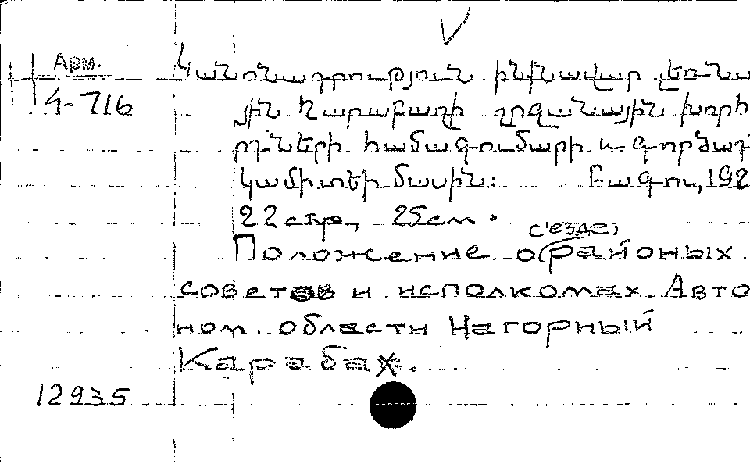 V
Арм.
4-716
Կանոնադրություն ինքնավար լեռնա
յին Ղարաբաղի շրջանային խորհ
րդների համագումարի և գործադ
կամիտեի մասին: Բագու, 192
22 стр, 25см.
съезде
Положение о районных
советов и исполкомах Авто
ном. области Нагорный
Карабах.
12935